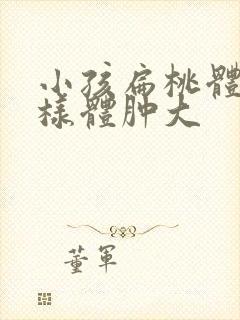 小孩扁桃體
樣體肿大
董軍